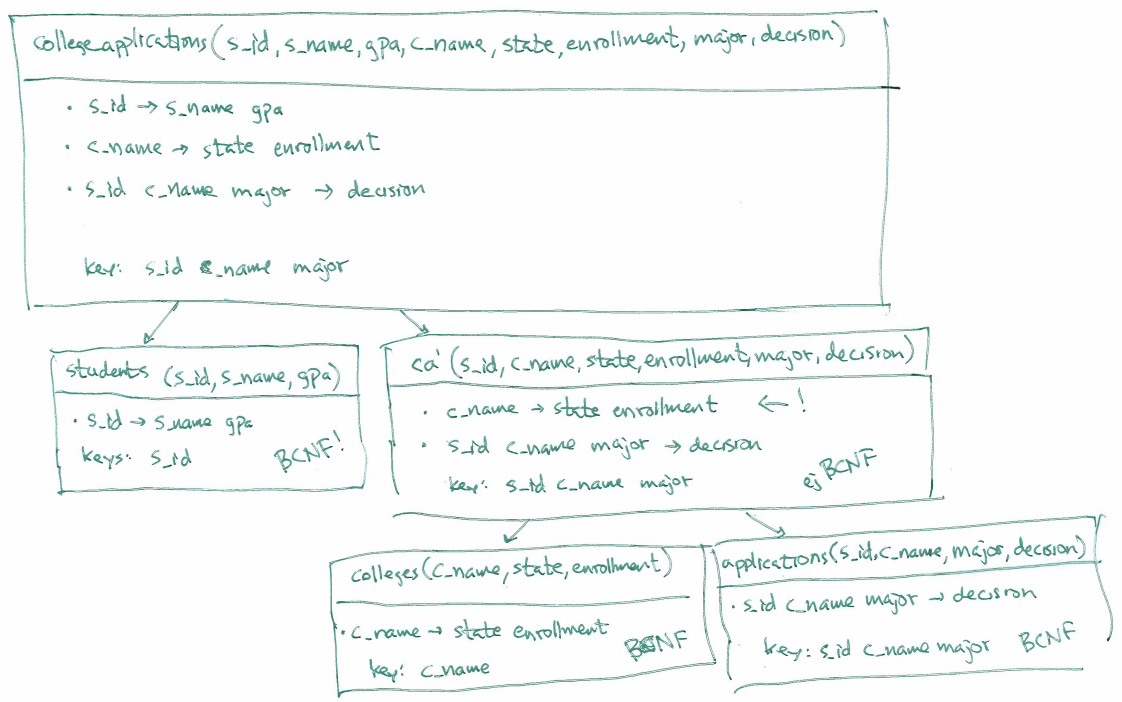 college_applications(s_id, s_name, gpa, c_name, state, enrollment, major, decision)
· s_id → s_name gpa
· c_name → state enrollment
· s_id c_name major → decision
key: s_id c_name major
students (s_id, s_name, gpa)
· s_id → s_name gpa
keys: s_id
BCNF!
ca' (s_id, c_name, state, enrollment, major, decision)
· c_name → state enrollment ← !
· s_id c_name major → decision
key: s_id c_name major
ej BCNF
colleges (c_name, state, enrollment)
· c_name → state enrollment
key: c_name
BCNF
applications(s_id, c_name, major, decision)
· s_id c_name major → decision
key: s_id c_name major BCNF